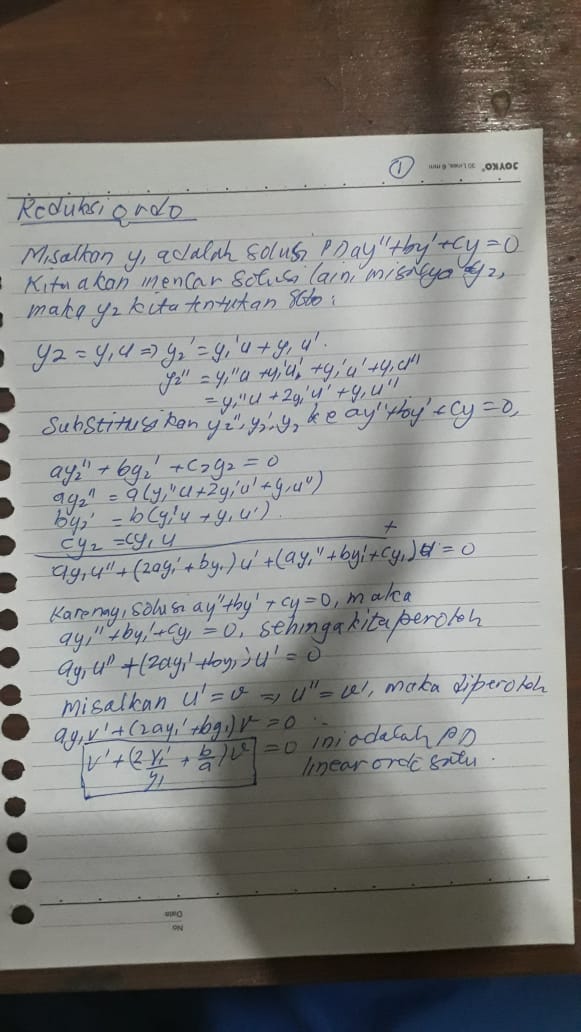 JOYKO® 30 Lines, 6 mm
1
Reduksi Ordo
Misalkan y₁ adalah solusi PD ay"+by'+cy=0
Kita akan mencar solusi lain, misalnya y₂,
maka y₂ kita tentukan sbb:
y₂ = y₁u => y₂' = y₁'u + y₁u'.
y₂" = y₁"u + y₁'u' + y₁'u' + y₁u"
= y₁"u + 2y₁'u' + y₁u"
Substitusikan y₂", y₂', y₂ ke ay"+by'+cy=0,
ay₂" + by₂' + c₂y₂ = 0
ay₂" = a(y₁"u+2y₁'u'+y₁u")
by₂' = b(y₁'u + y₁u')
cy₂ = cy₁u
+
ay₁u" + (2ay₁'+by₁)u' + (ay₁"+by₁'+cy₁)u = 0
Karena y₁ solusi ay"+by'+cy=0, maka
ay₁"+by₁'+cy₁ = 0, sehingga kita peroleh
ay₁u" + (2ay₁'+by₁)u' = 0
misalkan u' = v => u" = v', maka diperoleh
ay₁v' + (2ay₁'+by₁)v = 0
v' + (2 y₁'/y₁ + b/a)v = 0 ini adalah PD
linear orde satu.
No
Date